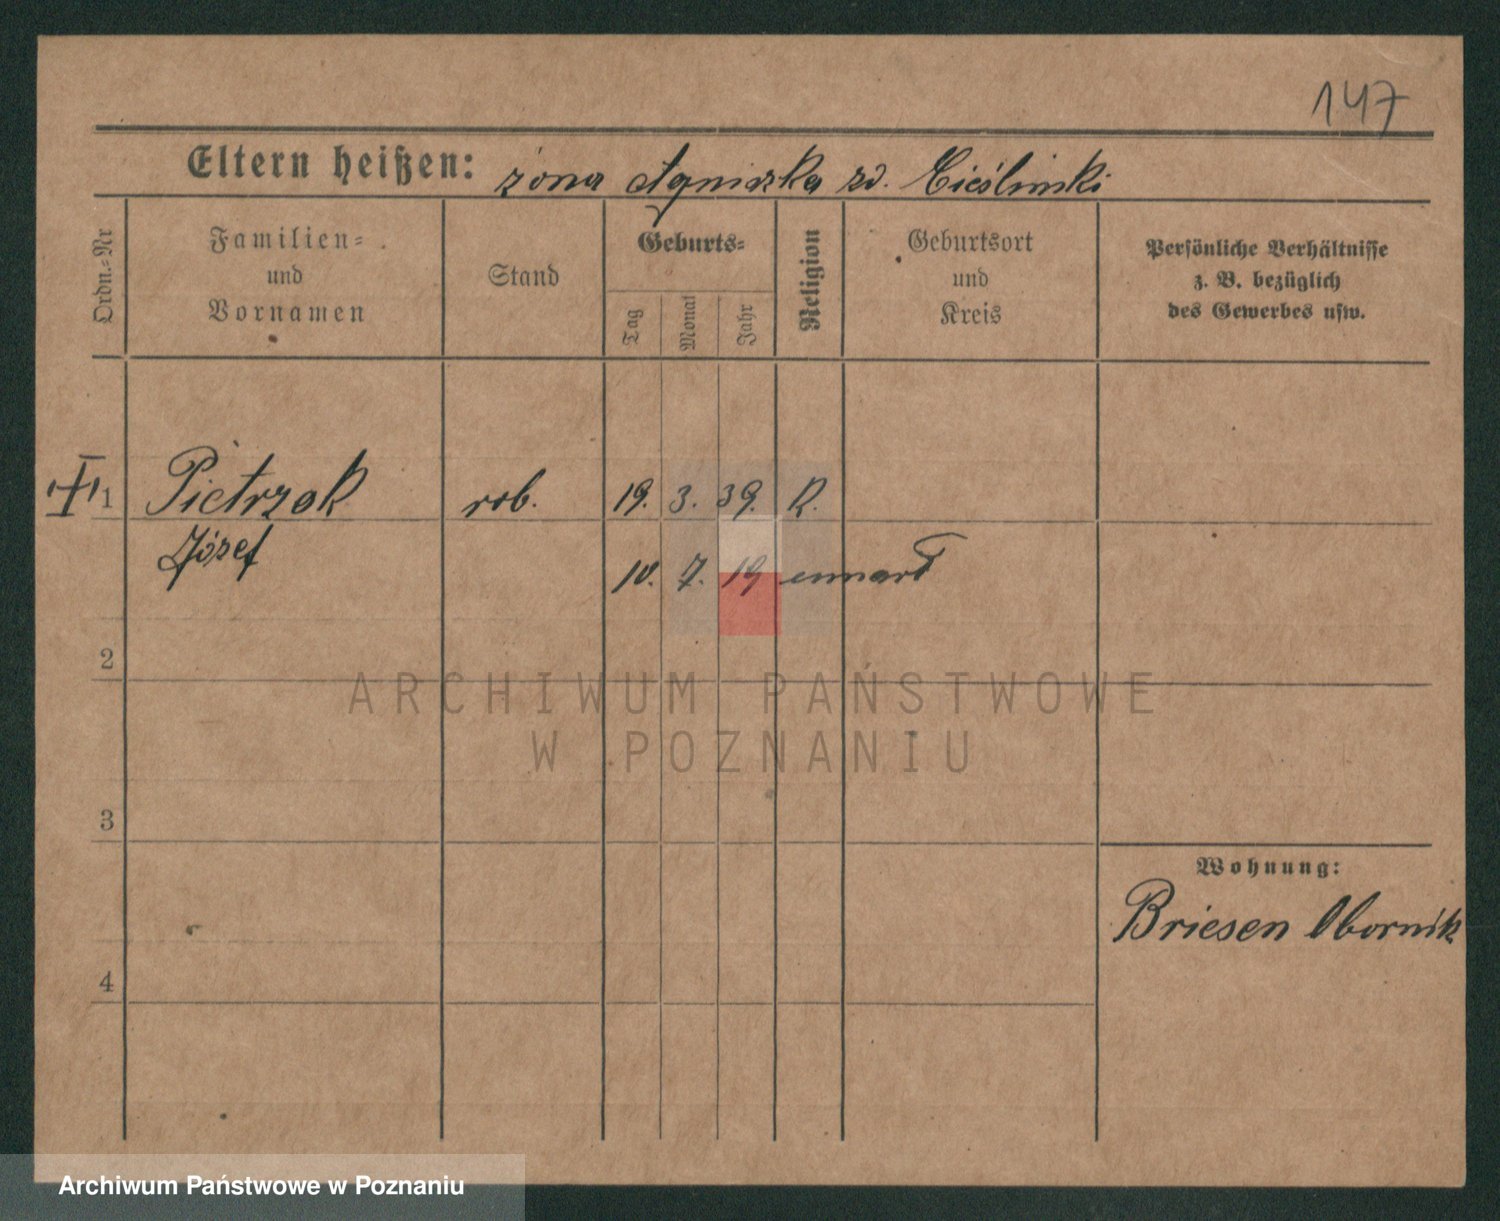 147
Eltern heißen: żona Agniszka zd. Cieślinski
Ordn.=Nr
Familien=
und
Vornamen
Stand
Geburts=
Tag
Monat
Jahr
Religion
Geburtsort
und
Kreis
Persönliche Verhältnisse
z. B. bezüglich
des Gewerbes usw.
1 Pietrzak rob. 19. 3. 39. K.
Józef
10. 7. 19 umarł
2
ARCHIWUM PAŃSTWOWE
W POZNANIU
3
Wohnung:
Briesen Obornik
4
Archiwum Państwowe w Poznaniu